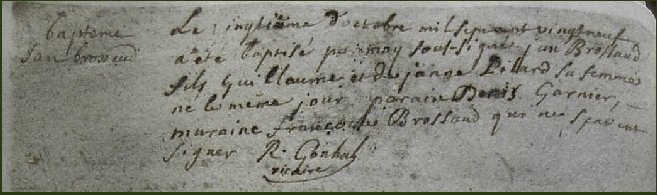 bapteme
Jan brossaud
Le vingtiême d'octobre mil sept cent vingt neuf
a été baptisé par moy sous-signé jan Brossaud
fils Guillaume et de janne Pitard sa femme
né le même jour paraine Denis Garnier,
maraine françoise Brossaud qui ne sçavent
signer R. Gouhal
vicaire